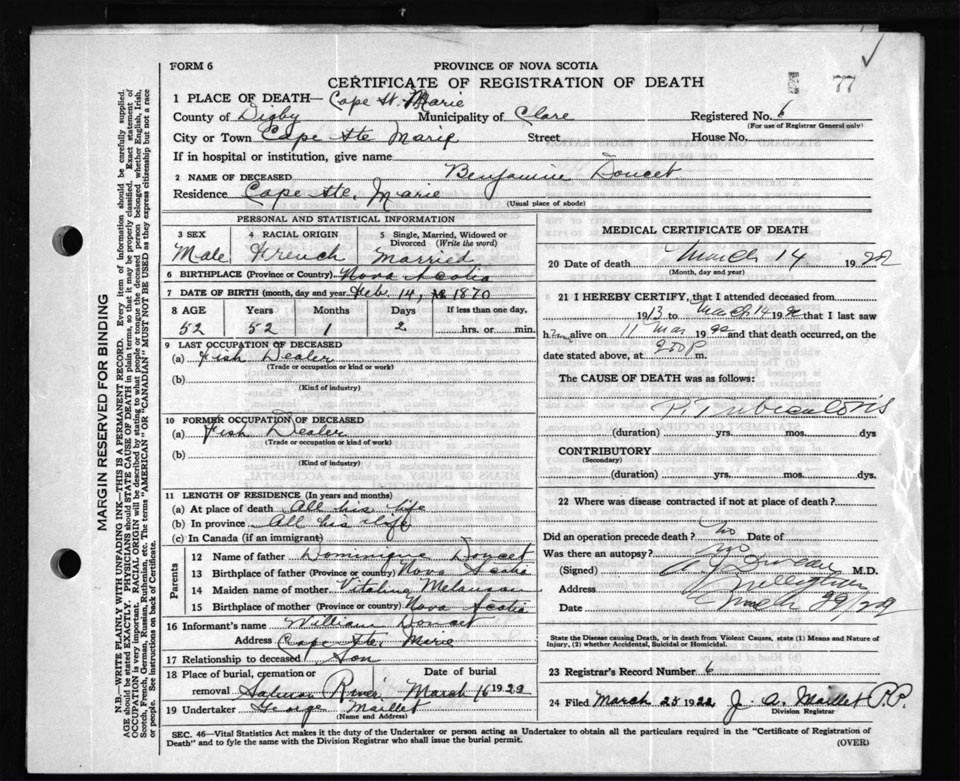 FORM 6
PROVINCE OF NOVA SCOTIA
CERTIFICATE OF REGISTRATION OF DEATH
77
1 PLACE OF DEATH— Cape St. Marie
County of Digby Municipality of Clare Registered No. 6
(For use of Registrar General only)
City or Town Cape Ste Marie Street House No.
If in hospital or institution, give name
2 NAME OF DECEASED Benjamine Doucet
Residence Cape Ste. Marie
(Usual place of abode)
PERSONAL AND STATISTICAL INFORMATION
3 SEX 4 RACIAL ORIGIN 5 Single, Married, Widowed or Divorced (Write the word)
Male French Married
6 BIRTHPLACE (Province or Country) Nova Scotia
7 DATE OF BIRTH (month, day and year) Feb. 14, 1870
8 AGE Years Months Days If less than one day,
52 52 1 2 hrs. or min.
9 LAST OCCUPATION OF DECEASED
(a) Fish Dealer
(Trade or occupation or kind or work)
(b)
(Kind of industry)
10 FORMER OCCUPATION OF DECEASED
(a) Fish Dealer
(Trade or occupation or kind or work)
(b)
(Kind of industry)
11 LENGTH OF RESIDENCE (In years and months)
(a) At place of death All his life
(b) In province All his life
(c) In Canada (if an immigrant)
Parents
12 Name of father Dominique Doucet
13 Birthplace of father (Province or country) Nova Scotia
14 Maiden name of mother Vitaline Melanson
15 Birthplace of mother (Province or country) Nova Scotia
16 Informant's name William Doucet
Address Cape Ste. Marie
17 Relationship to deceased Son
18 Place of burial, cremation or removal Salmon River Date of burial March 16 1922
19 Undertaker George Maillet
(Name and Address)
MEDICAL CERTIFICATE OF DEATH
20 Date of death March 14 1922
(Month, day and year)
21 I HEREBY CERTIFY, that I attended deceased from
1913 to March 14 19 that I last saw
h alive on 11 Mar 19 and that death occurred, on the
date stated above, at m.
The CAUSE OF DEATH was as follows:
(duration) yrs. mos. dys
CONTRIBUTORY
(Secondary)
(duration) yrs. mos. dys.
22 Where was disease contracted if not at place of death?
Did an operation precede death? no Date of
Was there an autopsy? no
(Signed) M.D.
Address
Date
State the Disease causing Death, or in death from Violent Causes, state (1) Means and Nature of
Injury, (2) whether Accidental, Suicidal or Homicidal.
23 Registrar's Record Number 6
24 Filed March 25 1922 J. A. Maillet P.P.
Division Registrar
SEC. 46—Vital Statistics Act makes it the duty of the Undertaker or person acting as Undertaker to obtain all the particulars required in the "Certificate of Registration of
Death" and to fyle the same with the Division Registrar who shall issue the burial permit.
(OVER)
MARGIN RESERVED FOR BINDING
N.B.—WRITE PLAINLY WITH UNFADING INK—THIS IS A PERMANENT RECORD. Every item of information should be carefully supplied.
AGE should be stated EXACTLY. PHYSICIANS should STATE CAUSE OF DEATH in plain terms, so that it may be properly classified. Exact statement of
OCCUPATION is very important. RACIAL ORIGIN will be described by stating to what people or tongue the deceased person belonged whether English, Irish,
Scotch, French, German, Russian, Ruthenian, etc. The terms "AMERICAN" OR "CANADIAN" MUST NOT BE USED as they express citizenship but not a race
or people. See instructions on back of Certificate.